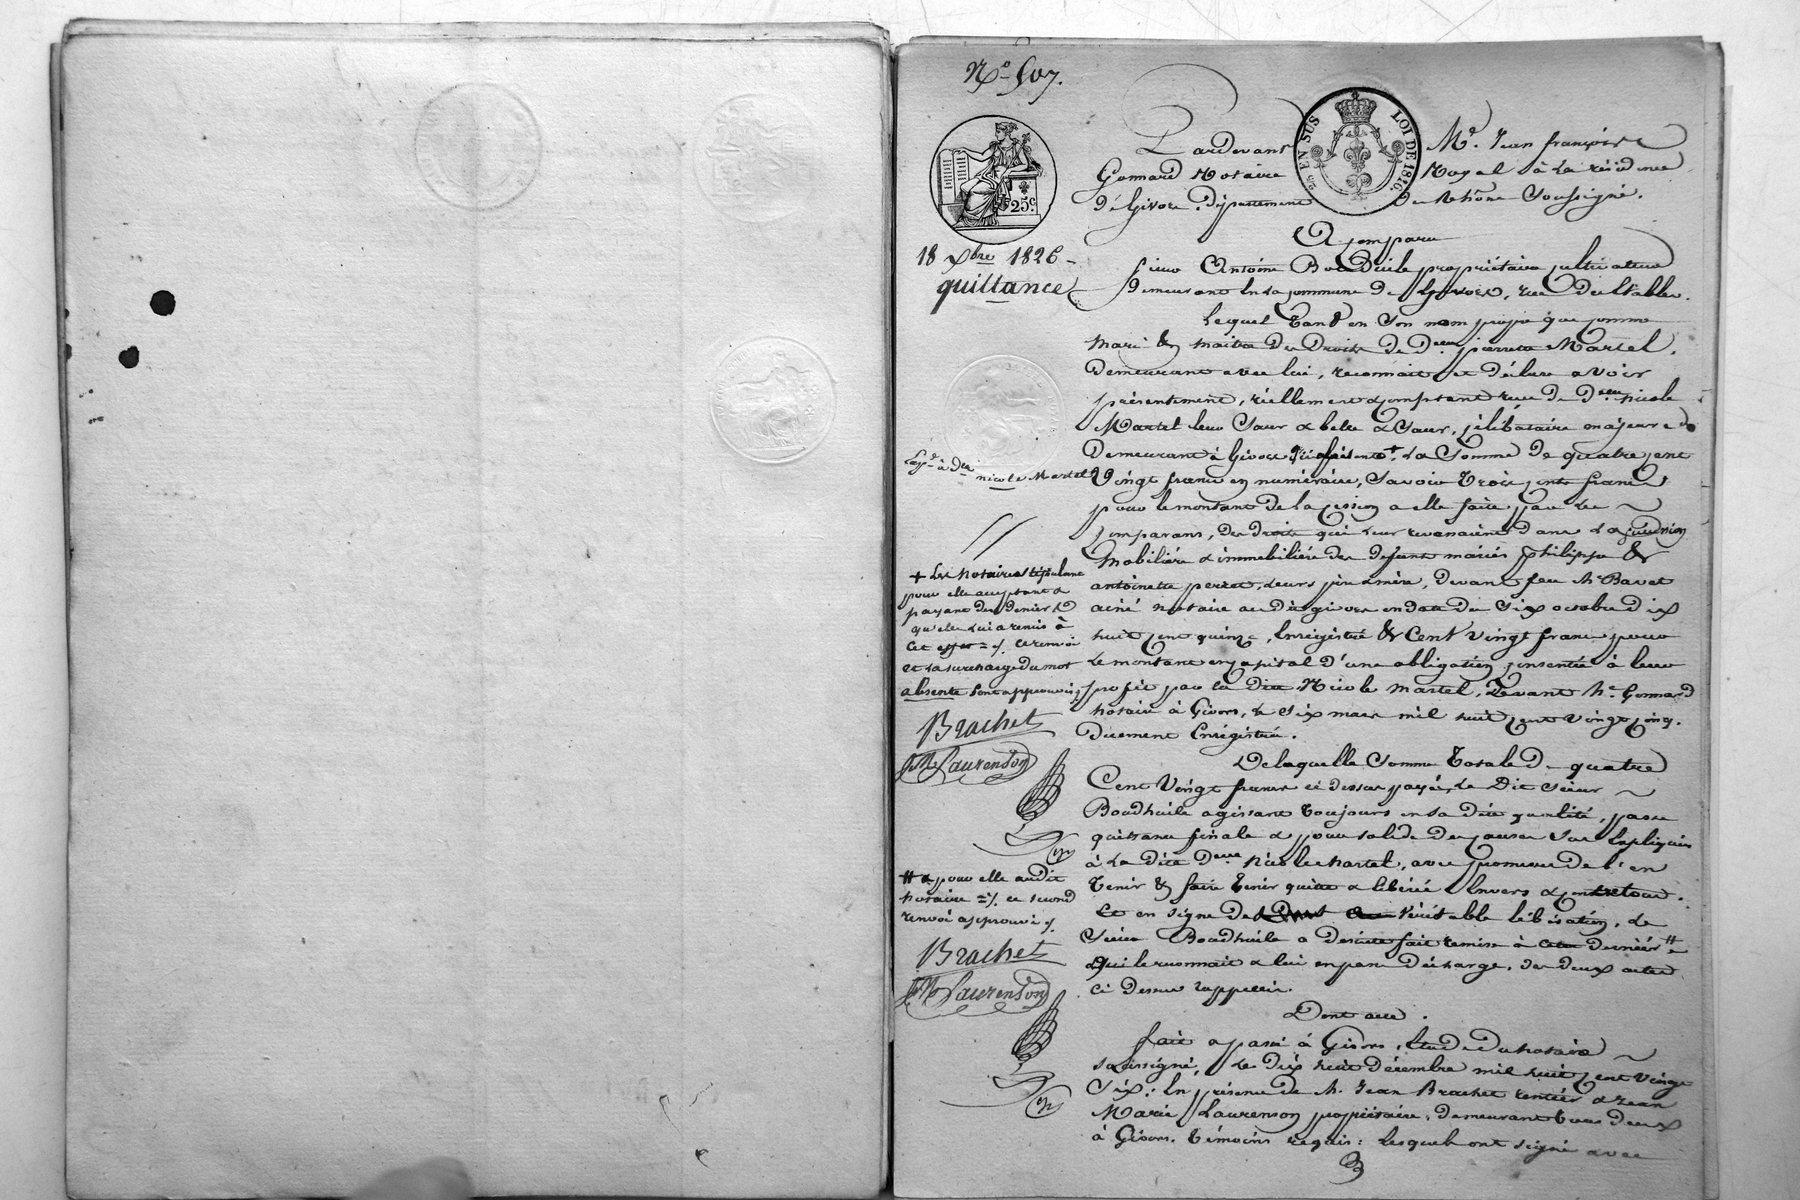 N.º 507.
25 EN SUS
LOI DE 1816.
25.c
18 Xbre 1826 -
quittance
Pardevant Me. Jean françois
Gonnard Notaire Royal à la résidence
de Givors, département du Rhône Soussigné.
A comparu
sieur Antoine Boudhuile propriétaire cultivateur
demeurant en la commune de Givors, rue
Lequel tant en son nom propre que comme
mari & maitre des Droits de Dme pierrette Martel,
demeurant avec lui, reconnait et déclare avoir
présentement, réellement & comptant reçu de Dlle nicole
Martel leur Sœur & belle Sœur, célibataire majeure
demeurant à Givors ici absente + la Somme de quatre cent
Vingt francs en numéraire, Savoir Trois cents francs
pour le montant de la cession a elle faite par les
comparans, des droits qui leur revenaient dans la succession
mobilière & immobilière des défunts mariés philippe &
antoinette perret, leurs père & mère, devant feu Me Bavet
ainé notaire au dit givors en date du Six octobre dix
huit cent quinze, Enregistré & Cent vingt francs pour
le montant en capital d'une obligation consentie à leur
profit par la dite Nicole Martel, Devant Me Gonnard
notaire à Givors, le Six mars mil huit cent vingt cinq.
Duement Enregistrée.
De laquelle Somme Totale de quatre
Cent Vingt francs ci dessus payée, le Dit Sieur
Boudhuile agissant toujours en sa dite qualité, passe
quittance finale & pour solde des causes sus Expliquées
à la dite Dlle Nicole Martel, avec promesse de l'en
Tenir & faire tenir quitte & libérée Envers & contre tous.
Et en signe de véritable libération, le
Sieur Boudhuile a de suite fait remise à ce dernier #
qui le reconnait & lui en passe décharge, des deux actes
ci dessus rappellés.
Dont acte.
fait & passé à Givors, Etude du notaire
soussigné, le dix huit décembre mil huit cent vingt
Six; En présence de M. Jean Brachet rentier & Jean
Marie Laurenson propriétaire, demeurant tous deux
à Givors, témoins requis: lesquels ont signé avec
Exp.d à Dlle
nicole Martel
+ Les notaires stipulant
pour elle acceptant &
payant des deniers
qu'elle lui a remis à
cet effet =/. ce renvoi
et la surcharge du mot
absente sont approuvés
Brachet
JM Laurenson
# & pour elle audit
notaire =/. ce second
renvoi approuvé /.
Brachet
JM Laurenson